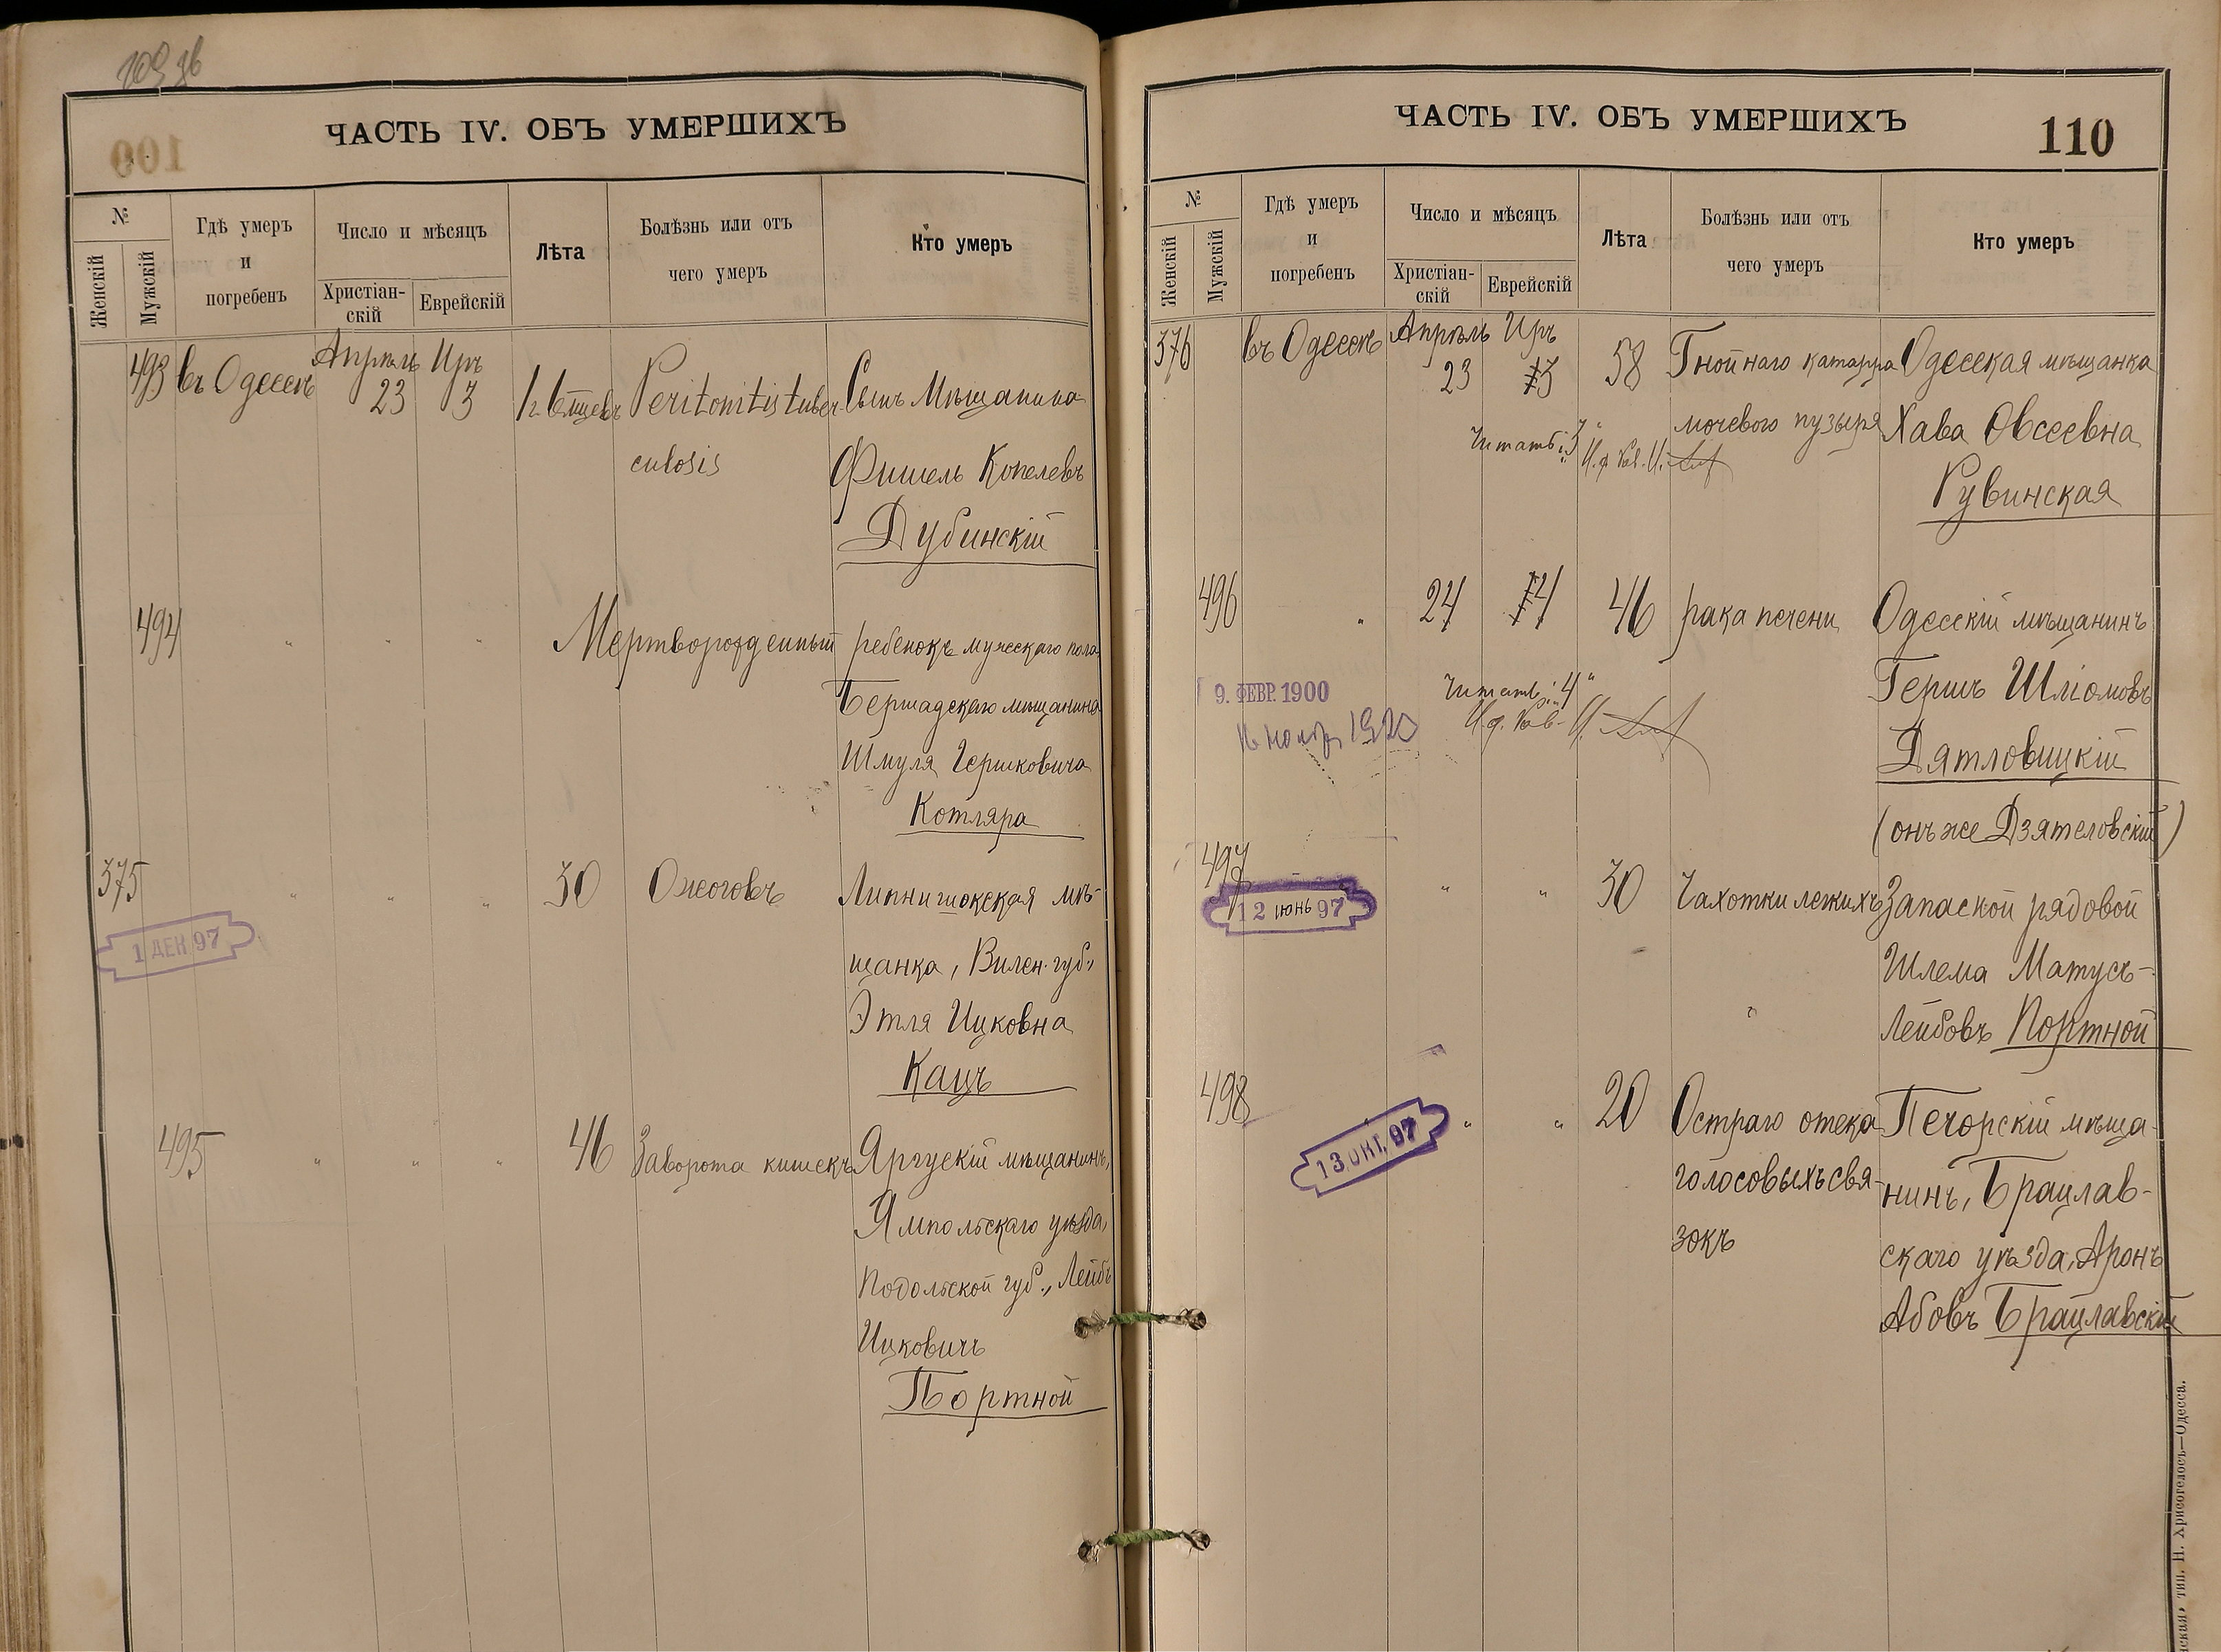 109 об
ЧАСТЬ IV. ОБЪ УМЕРШИХЪ
№
Женскій
Мужскій
Гдѣ умеръ
и
погребенъ
Число и мѣсяцъ
Христіан-
скій
Еврейскій
Лѣта
Болѣзнь или отъ
чего умеръ
Кто умеръ
493 въ Одессѣ Апрѣль Иръ
23 3 Peritonitis tuber- Сынъ Мѣщанина
culosis Фишель Копелевъ
Дубинскій
494 " " " Мертворожденный ребенокъ мужескаго пола
Бершадскаго мѣщанина
Шмуля Гершковича
Котляра
375 " " " 30 Ожоговъ Липнишокская мѣ-
1 ДЕК 97
щанка, Вилен. губ.,
Этля Ицковна
Кацъ
495 " " " 46 Заворота кишекъ Яругскій мѣщанинъ,
Ямпольскаго уѣзда,
Подольской губ., Лейбъ
Ицковичъ
Портной
ЧАСТЬ IV. ОБЪ УМЕРШИХЪ
110
№
Женскій
Мужскій
Гдѣ умеръ
и
погребенъ
Число и мѣсяцъ
Христіан-
скій
Еврейскій
Лѣта
Болѣзнь или отъ
чего умеръ
Кто умеръ
376 въ Одессѣ Апрѣль Иръ
23 13 58 Гнойнаго катарра Одесская мѣщанка
мочевого пузыря Хава Овсеевна
Читать: „3"
Рувинская
496 " 24 14 46 рака печени Одесскій мѣщанинъ
Гершъ Шліомовъ
9. ФЕВР. 1900
Читать: „4"
Дятловицкій
(онъ же Дзятеловскій)
497 " " 30 Чахотки легкихъ Запасной рядовой
12 ІЮНЬ 97
Шлема Матусъ-
Лейбовъ Портной
498 " " 20 Остраго отека Печорскій мѣща-
13 ОКТ. 97
голосовыхъ свя- нинъ, Брацлав-
зокъ скаго уѣзда, Аронъ
Абовъ Брацлавскій
тип. Н. Хрисогелосъ—Одесса.